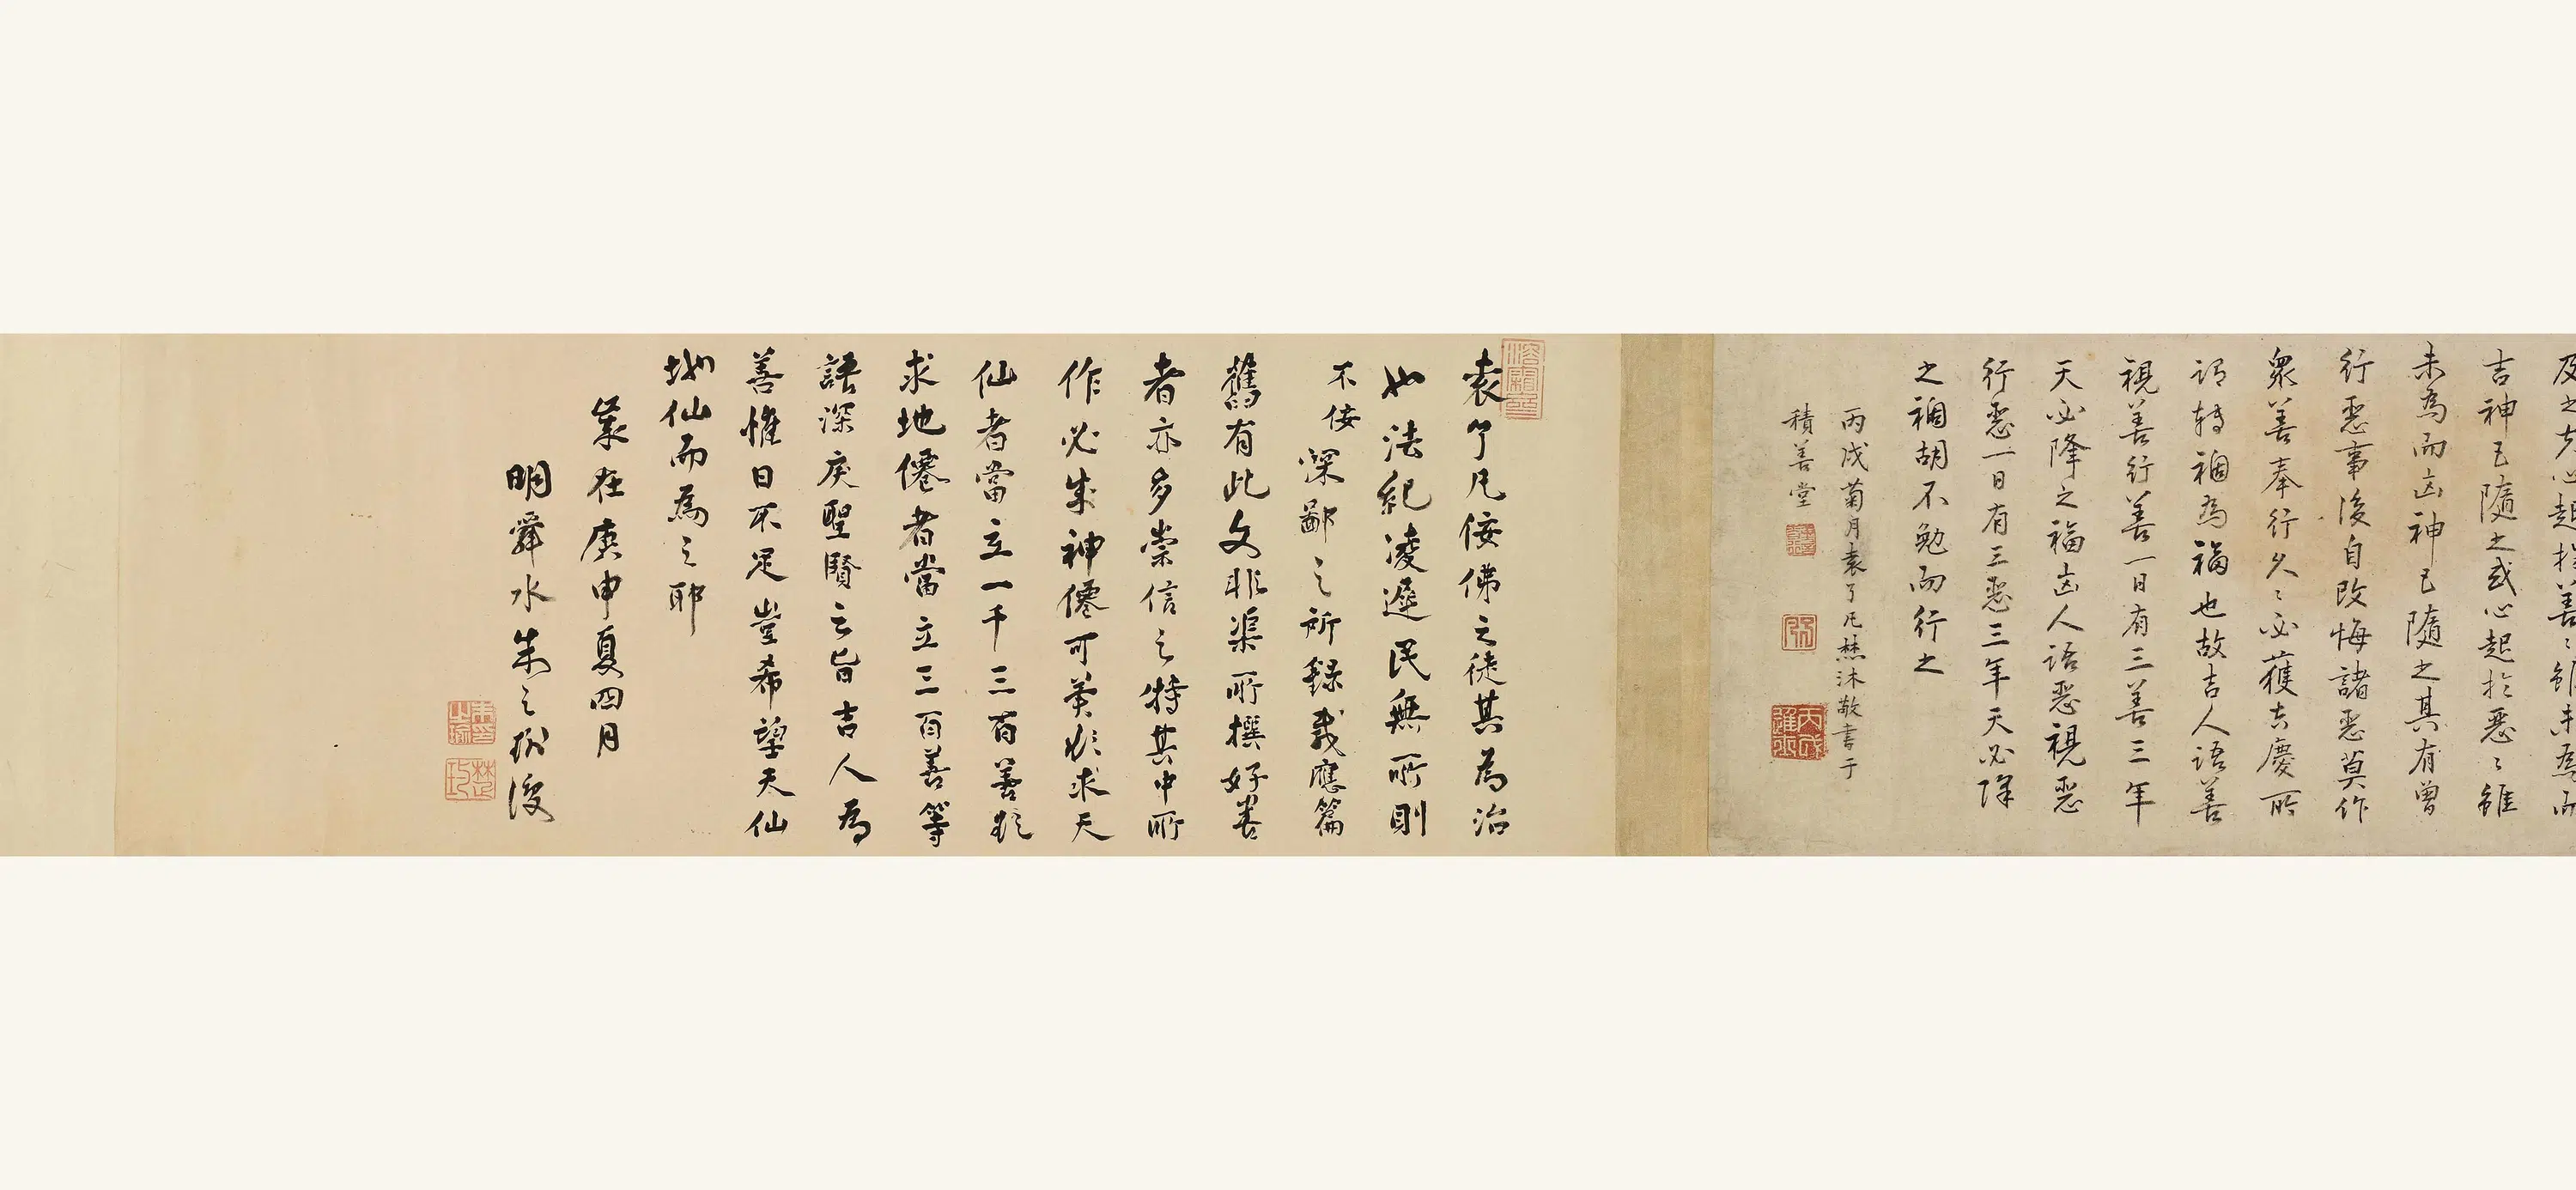 及之夫心起於善善雖未為而
吉神已隨之或心起於惡惡雖
未為而凶神已隨之其有曾
行惡事後自改悔諸惡莫作
衆善奉行久久必獲吉慶所
謂轉禍為福也故吉人語善
視善行善一日有三善三年
天必降之福凶人語惡視惡
行惡一日有三惡三年天必降
之禍胡不勉而行之
丙戌菊月袁了凡焚沐敬書于
積善堂
袁了凡佞佛之徒其為治
也法紀凌遲民無所則
不佞深鄙之所錄感應篇
舊有此文非渠所撰好善
者亦多崇信之特其中所
作必成神僊可冀欲求天
仙者當立一千三百善欲
求地僊者當立三百善等
語深戾聖賢之旨吉人為
善惟日不足豈希望天仙
地仙而為之耶
歲在庚申夏四月
明舜水朱之瑜
朱之瑜印
楚璵